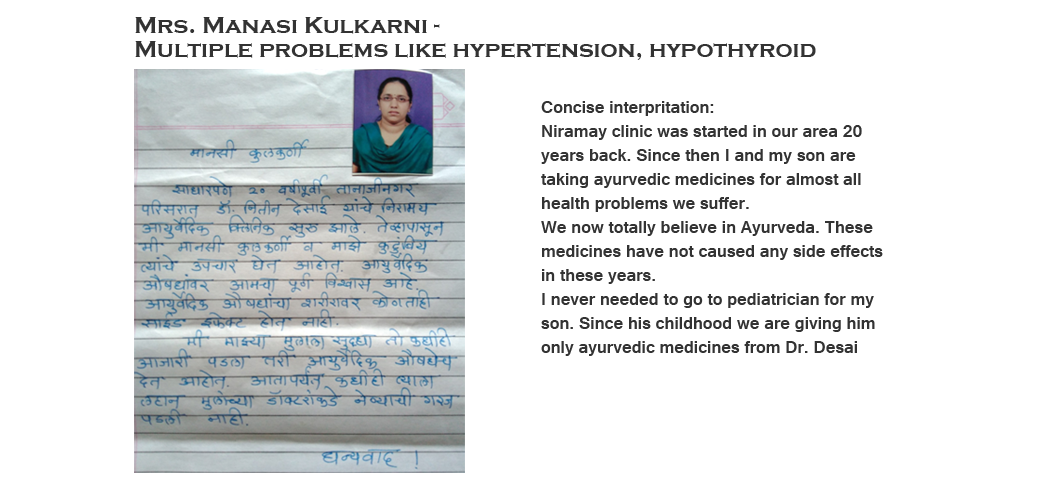 MRS. MANASI KULKARNI -
MULTIPLE PROBLEMS LIKE HYPERTENSION, HYPOTHYROID
मानसी कुलकर्णी
साधारपणे २० वर्षापूर्वी तानाजीनगर
परिसरात डॉ. नितीन देसाई यांचे निरामय
आयुर्वेदिक क्लिनिक सुरु झाले. तेव्हापासून
मी मानसी कुलकर्णी व माझे कुटुंबिय
त्यांचे उपचार घेत आहोत. आयुर्वेदिक
औषधांवर आमचा पूर्ण विश्वास आहे.
आयुर्वेदिक औषधांचा शरीरावर कोणताही
साईड इफेक्ट होत नाही.
मी माझ्या मुलाला सुद्धा तो कधीही
आजारी पडला तरी आयुर्वेदिक औषधेच
देत आहोत. आतापर्यंत कधीही त्याला
लहान मुलांच्या डॉक्टरांकडे नेण्याची गरज
पडली नाही.
धन्यवाद !
Concise interpritation:
Niramay clinic was started in our area 20
years back. Since then I and my son are
taking ayurvedic medicines for almost all
health problems we suffer.
We now totally believe in Ayurveda. These
medicines have not caused any side effects
in these years.
I never needed to go to pediatrician for my
son. Since his childhood we are giving him
only ayurvedic medicines from Dr. Desai